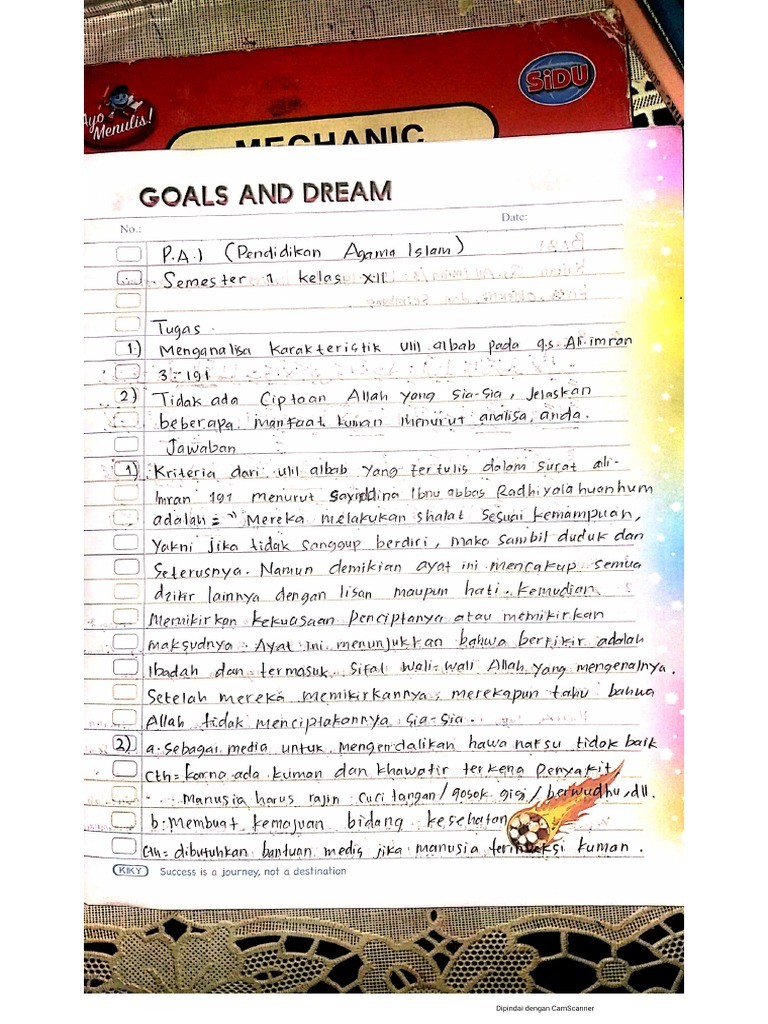 SiDU
Ayo
Menulis!
MECHANIC
GOALS AND DREAM
No.:
Date:
P.A.I (Pendidikan Agama Islam)
Semester 1 kelas XII
Tugas.
1.) Menganalisa karakteristik ulil albab pada q.s. Ali-imran
3:191
2) Tidak ada Ciptaan Allah yang sia-sia, Jelaskan
beberapa manfaat kuman menurut analisa anda.
Jawaban
1) Kriteria dari ulil albab Yang tertulis dalam surat ali-
Imran 191 menurut Sayiddina Ibnu abbas Radhiyalahuanhum
adalah = " Mereka melakukan shalat sesuai kemampuan,
Yakni jika tidak sanggup berdiri, maka sambil duduk dan
Seterusnya. Namun demikian ayat ini mencakup semua
dzikir lainnya dengan lisan maupun hati. Kemudian
Memikirkan kekuasaan penciptanya atau memikirkan
maksudnya. Ayat ini menunjukkan bahwa berfikir adalah
Ibadah dan termasuk sifat wali-wali Allah yang mengenalnya.
Setelah mereka memikirkannya, merekapun tahu bahwa
Allah tidak menciptakannya sia-sia.
2) a. Sebagai media untuk Mengendalikan hawa nafsu tidak baik
Cth = karna ada kuman dan khawatir terkena penyakit,
Manusia harus rajin cuci tangan/gosok gigi/berwudhu, dll.
b. Membuat kemajuan bidang kesehatan
Cth = dibutuhkan bantuan medis jika manusia terinfeksi kuman.
KIKY Success is a journey, not a destination
Dipindai dengan CamScanner